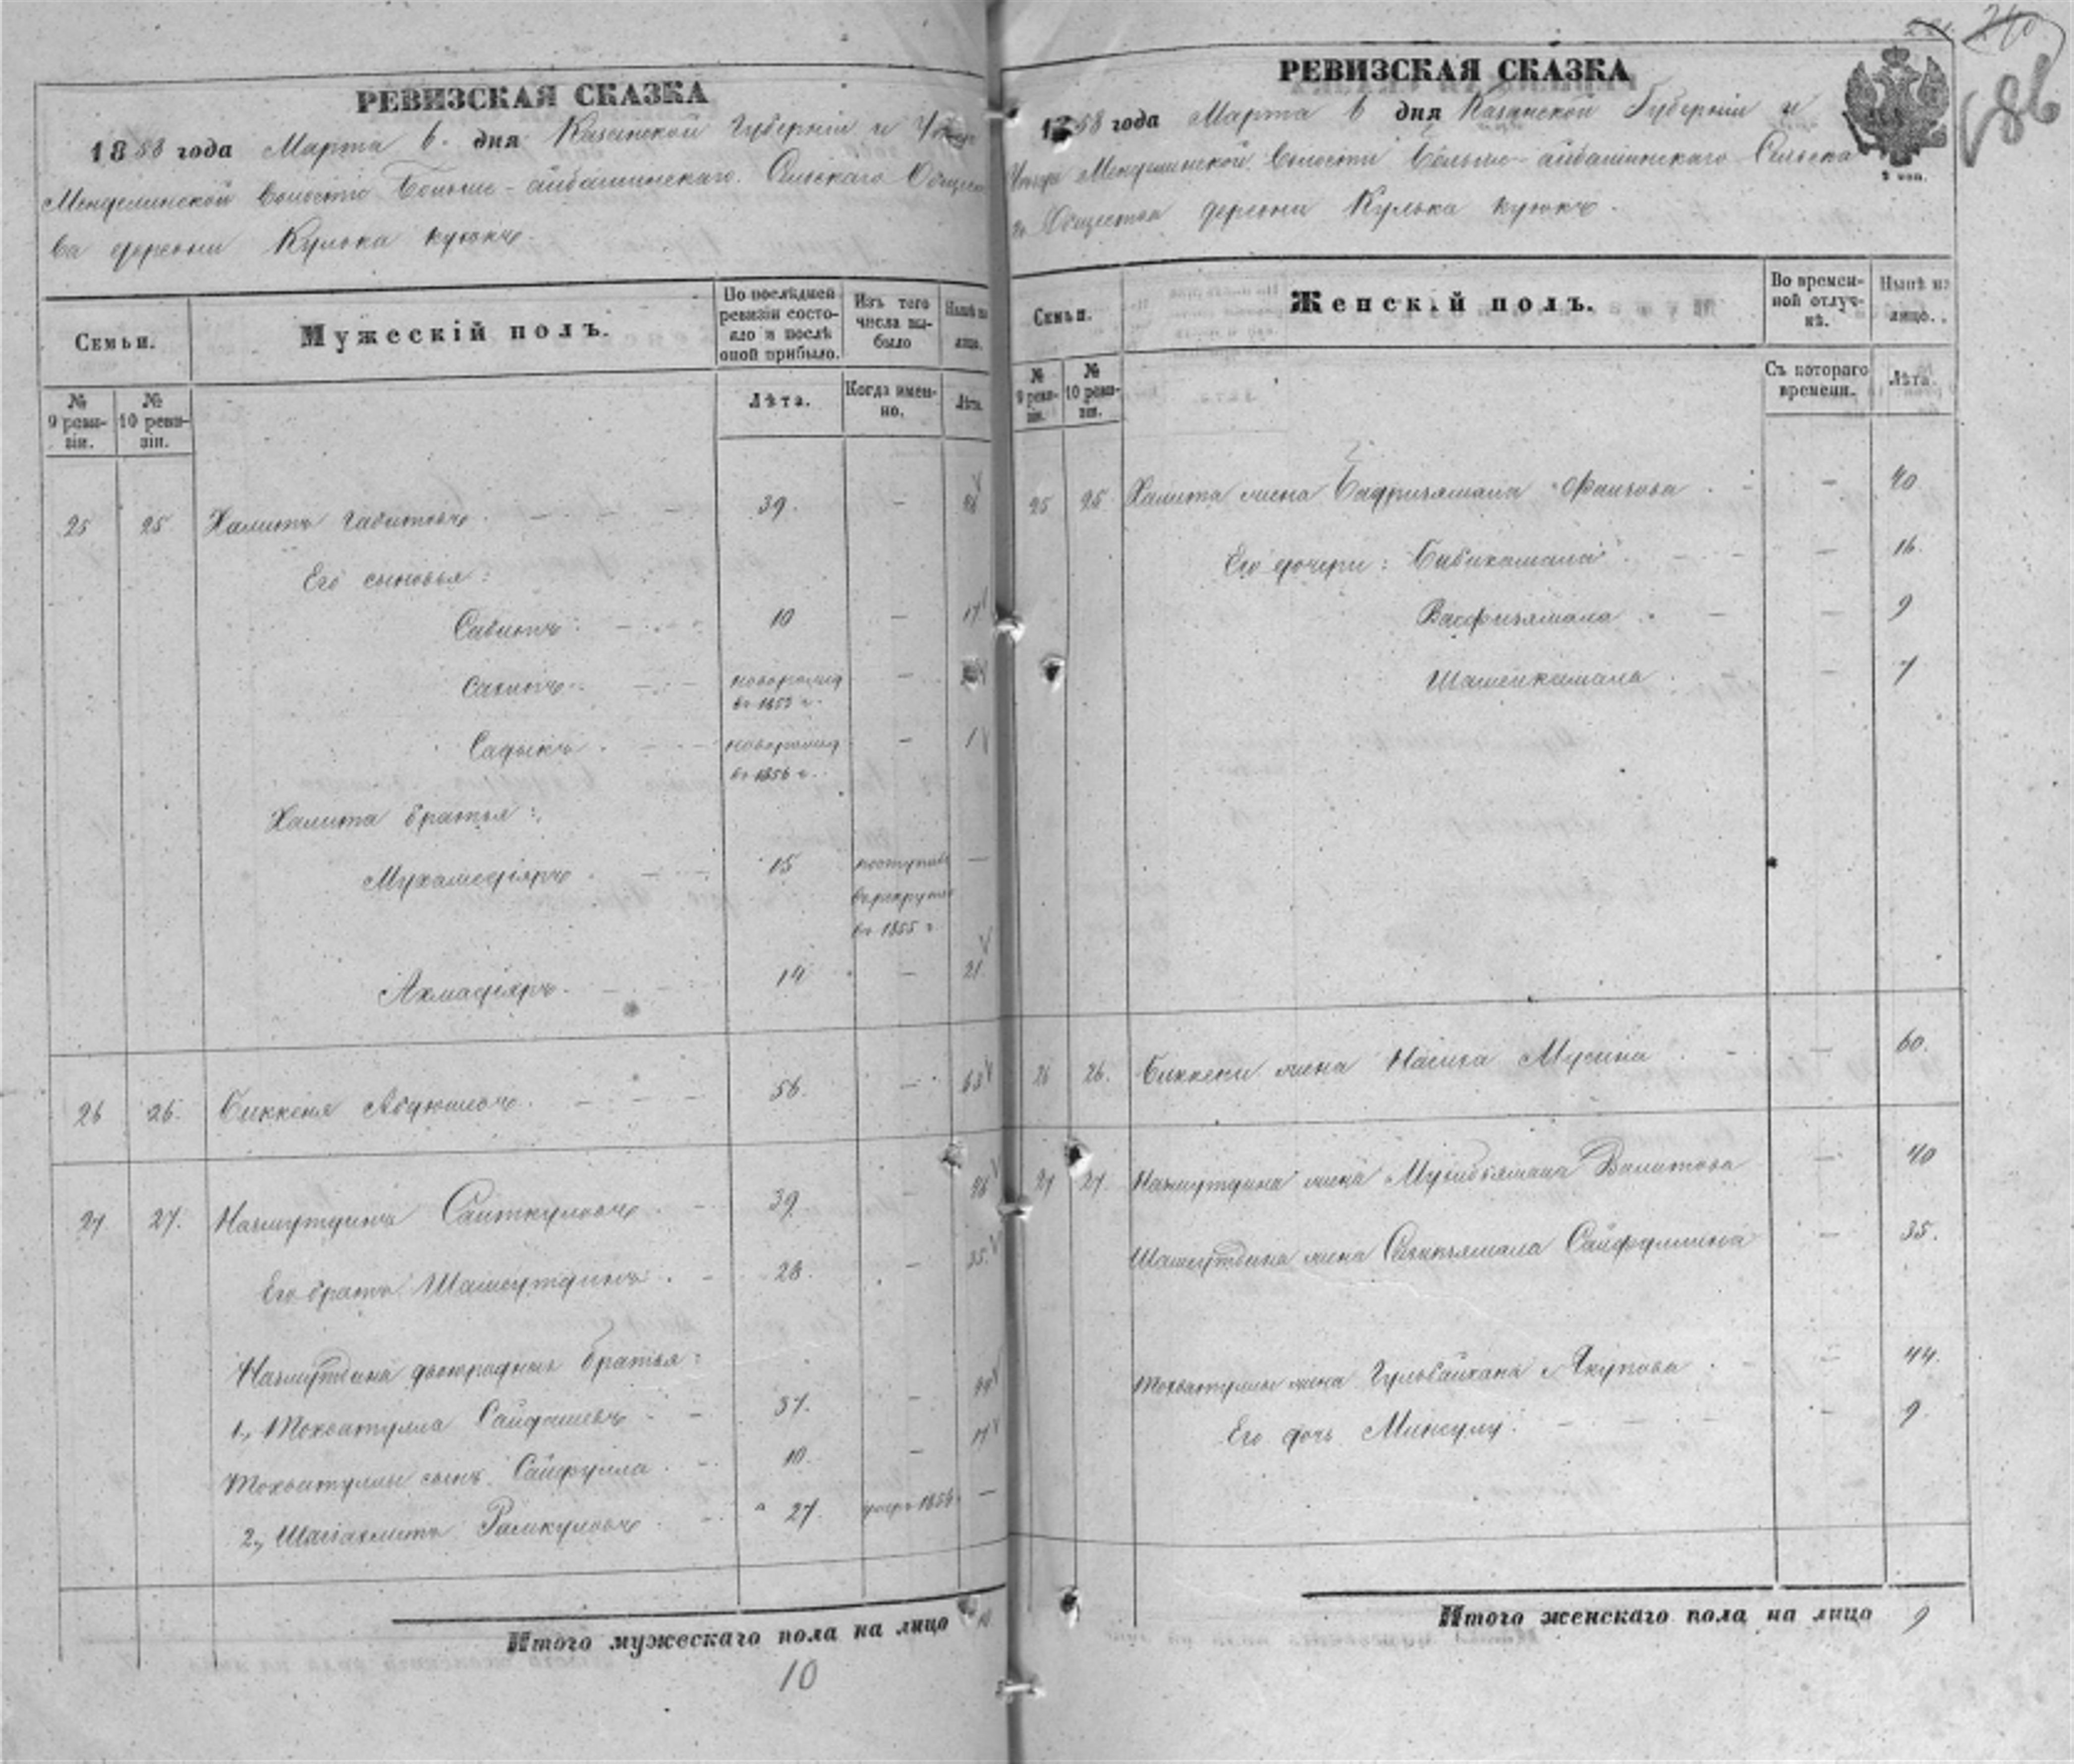 РЕВИЗСКАЯ СКАЗКА
1858 года Марта 6. дня Казанской Губерніи и
Менделинской волости Больше-айбашинскаго. Сельскаго
ва деревни Кулька куюкъ.
Семьи.
Мужескій полъ.
По послѣдней ревизіи состояло и послѣ оной прибыло.
Изъ того числа выбыло
Нынѣ на лицо.
№ 9 ревизіи.
№ 10 ревизіи.
Лѣта.
Когда именно.
Лѣта.
25 25 Халитъ Габитовъ. 39. — 46
Его сыновья:
Сабитъ 10 — 17
Сахипъ новорожд —
Садыкъ новорожд — 1
въ 1856 г.
Халита братья:
Мухамедіяръ 15 поступилъ —
въ рекруты
въ 1855 г
Ахмадіяръ. 14 — 21
26 26. Биккеня 56. — 63
27. 27. Назмутдинъ Саиткуловъ 39. — 46
Его братъ Шамсутдинъ 28. — 35.
Назмутдина двоюродные братья:
1., Тохватулла 37. — 44
Тохватуллы сынъ Сайфулла 10. — 17
2., Рамкуловъ 27. —
Итого мужескаго пола на лицо
10
240
686
РЕВИЗСКАЯ СКАЗКА
1858 года Марта 6 дня Казанской Губерніи и
Менделинской волости Больше-айбашинскаго Сельска
го Общества деревни Кулька куюкъ.
2 коп.
Семьи.
Женскій полъ.
Во временной отлучкѣ.
Нынѣ на лицо.
№ 9 ревизіи.
№ 10 ревизіи.
Съ котораго времени.
Лѣта.
25 25. Халита жена — 40
Его дочери: Бибикамала — 16.
— 9
Шамсикамала — 7
26 26. Биккени жена Мусина — 60.
27 27. Назмутдина жена Валитова — 40
Шамсутдина жена Сайфуллина — 35.
Тохватуллы жена Гульбайхана Якупова — 44.
Его дочь Минсулу. — 9.
Итого женскаго пола на лицо 9